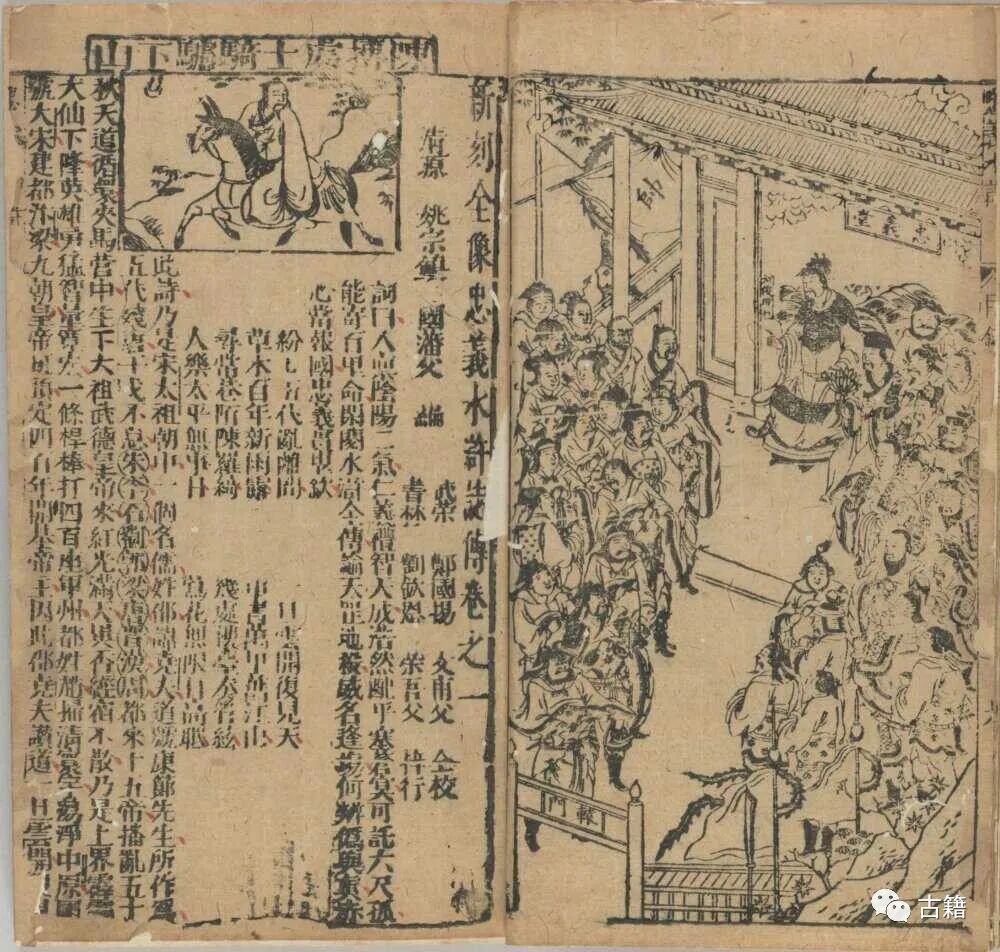 帥
忠義堂
轅門
新刻全像忠義水滸誌傳卷之一
清源 姚宗鎮 國藩父 編
武榮 鄭國揚 文甫父 仝校
書林 劉欽恩 榮吾父 梓行
詞曰人稟陰陽二氣仁義禮智天成浩然配乎塞蒼冥可託六尺孤
能寄百里命閑閱水滸全傳論天罡地煞威名逢場何辨僞與真赤
心當報國忠義實堪欽
紛紛五代亂離間 一旦雲開復見天
草木百年新雨露 車書萬里舊江山
尋常巷陌陳羅綺 幾處樓臺奏管絃
人樂太平無事日 鶯花無限日高眠
陳摶處士騎驢下山
此詩乃是宋太祖朝中一個名儒姓邵諱堯夫道號康節先生所作爲
五代殘唐干戈不息朱李石劉郭梁唐晉漢周都來十五帝播亂五十
秋天道循環夾馬營中生下太祖武德皇帝來紅光滿天異香經宿不散乃是上界霹靂
大仙下降英雄勇猛智量寬大一條桿棒打四百座軍州都姓趙掃清寰宇蕩淨中原國
號大宋建都汴梁九朝皇帝班頭定四百年開基帝王因此邵堯夫讚道一旦雲開
古籍